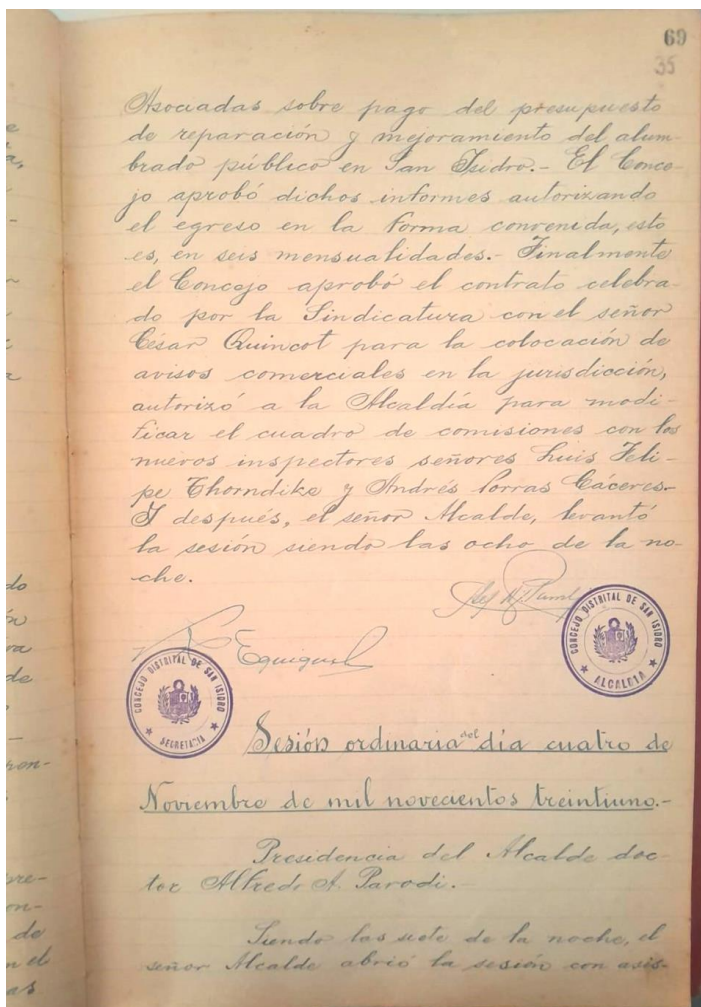 69
35
Asociadas sobre pago del presupuesto
de reparación y mejoramiento del alum-
brado público en San Isidro.- El Conce-
jo aprobó dichos informes autorizando
el egreso en la forma convenida, esto
es, en seis mensualidades.- Finalmente
el Concejo aprobó el contrato celebra-
do por la Sindicatura con el señor
César Quincot para la colocación de
avisos comerciales en la jurisdicción,
autorizó a la Alcaldía para modi-
ficar el cuadro de comisiones con los
nuevos inspectores señores Luis Feli-
pe Thorndike y Andrés Porras Cáceres.-
Y después, el señor Alcalde, levantó
la sesión siendo las ocho de la no-
che.
CONCEJO DISTRITAL DE SAN ISIDRO
ALCALDIA
CONCEJO DISTRITAL DE SAN ISIDRO
SECRETARIA
Sesión ordinaria del día cuatro de
Noviembre de mil novecientos treintiuno.-
Presidencia del Alcalde doc-
tor Alfredo A. Parodi.-
Siendo las siete de la noche, el
señor Alcalde abrió la sesión con asis-